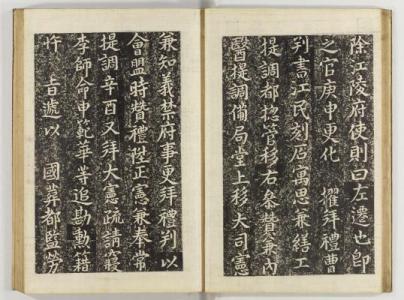 除江陵府使則曰左遷也卽
之官庚申更化 擢拜禮曹
判書江民刻石寓思兼繕工
提調都摠管移右參贊兼內
醫提調備局堂上移大司憲
兼知義禁府事更拜禮判以
會盟時贊禮陞正憲兼奉常
提調辛酉又拜大憲疏請寢
李師命申範華等追勘勳籍
許 旨遞以 國葬都監勞